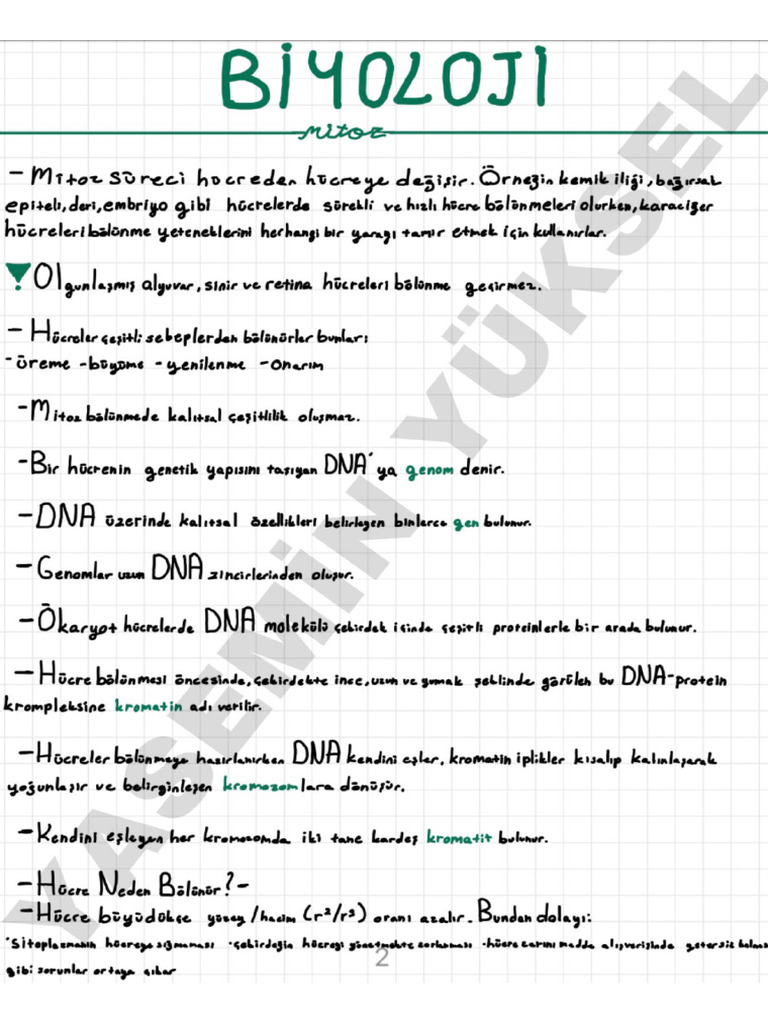 BİYOLOJİ
mitoz
- Mitoz süreci hücreden hücreye değişir. Örneğin kemik iliği, bağırsak
epiteli, deri, embriyo gibi hücrelerde sürekli ve hızlı hücre bölünmeleri olurken, karaciğer
hücreleri bölünme yeteneklerini herhangi bir yarayı tamir etmek için kullanırlar.
Olgunlaşmış alyuvar, sinir ve retina hücreleri bölünme geçirmez.
- Hücreler çeşitli sebeplerden bölünürler bunlar;
-üreme -büyüme -yenilenme -onarım
-Mitoz bölünmede kalıtsal çeşitlilik oluşmaz.
-Bir hücrenin genetik yapısını taşıyan DNA'ya genom denir.
-DNA üzerinde kalıtsal özellikleri belirleyen binlerce gen bulunur.
-Genomlar uzun DNA zincirlerinden oluşur.
-Ökaryot hücrelerde DNA molekülü çekirdek içinde çeşitli proteinlerle bir arada bulunur.
-Hücre bölünmesi öncesinde, çekirdekte ince, uzun ve yumak şeklinde görülen bu DNA-protein
krompleksine kromatin adı verilir.
-Hücreler bölünmeye hazırlanırken DNA kendini eşler, kromatin iplikler kısalıp kalınlaşarak
yoğunlaşır ve belirginleşen kromozomlara dönüşür.
-Kendini eşleyen her kromozomda iki tane kardeş kromatit bulunur.
-Hücre Neden Bölünür?-
-Hücre büyüdükçe yüzey/hacim (r²/r³) oranı azalır. Bundan dolayı:
·Sitoplazmanın hücreye sığmaması ·çekirdeğin hücreyi yönetmekte zorlanması ·hücre zarını madde alışverişinde yetersiz kalması
gibi sorunlar ortaya çıkar
2
YASEMİN YÜKSEL